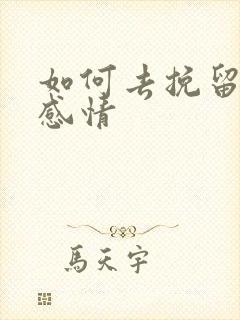 如何去挽留
感情
馬天宇